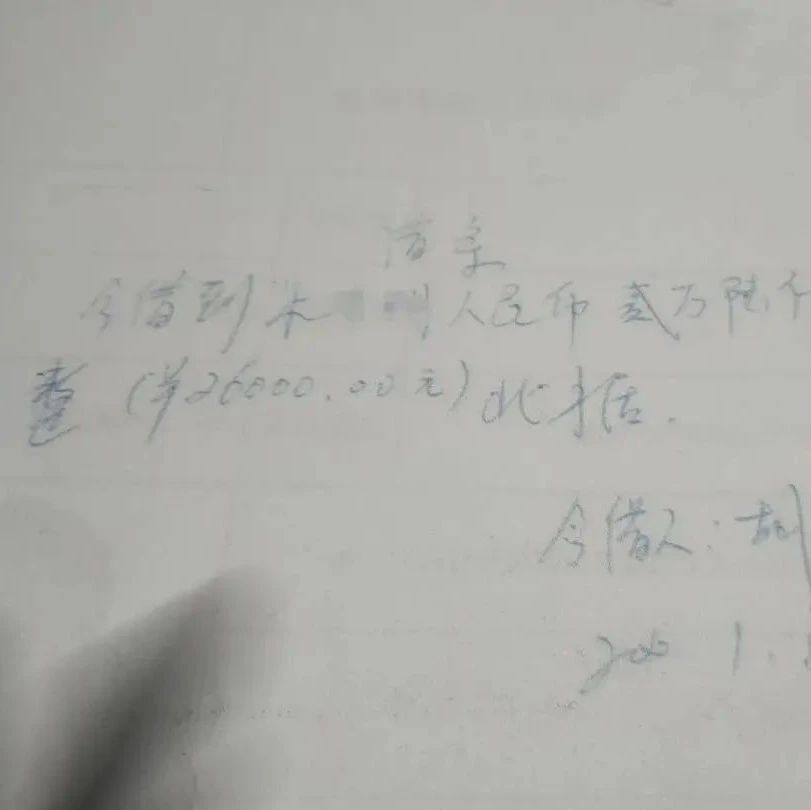 借条
今借到朱 人民币贰万陆仟
整(¥26000.00元)此据.
今借人:胡
200 1.